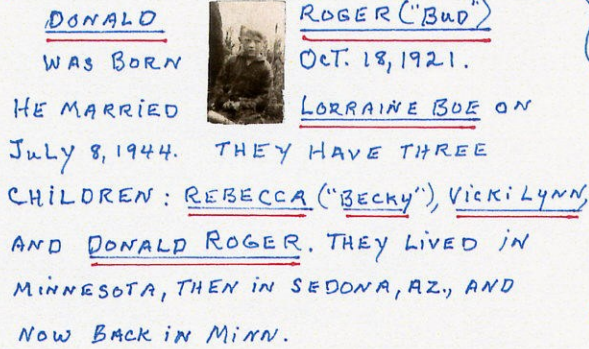 DONALD ROGER ("BUD")
WAS BORN OCT. 18, 1921.
HE MARRIED LORRAINE BOE ON
JULY 8, 1944. THEY HAVE THREE
CHILDREN: REBECCA ("BECKY"), VICKI LYNN,
AND DONALD ROGER. THEY LIVED IN
MINNESOTA, THEN IN SEDONA, AZ., AND
NOW BACK IN MINN.